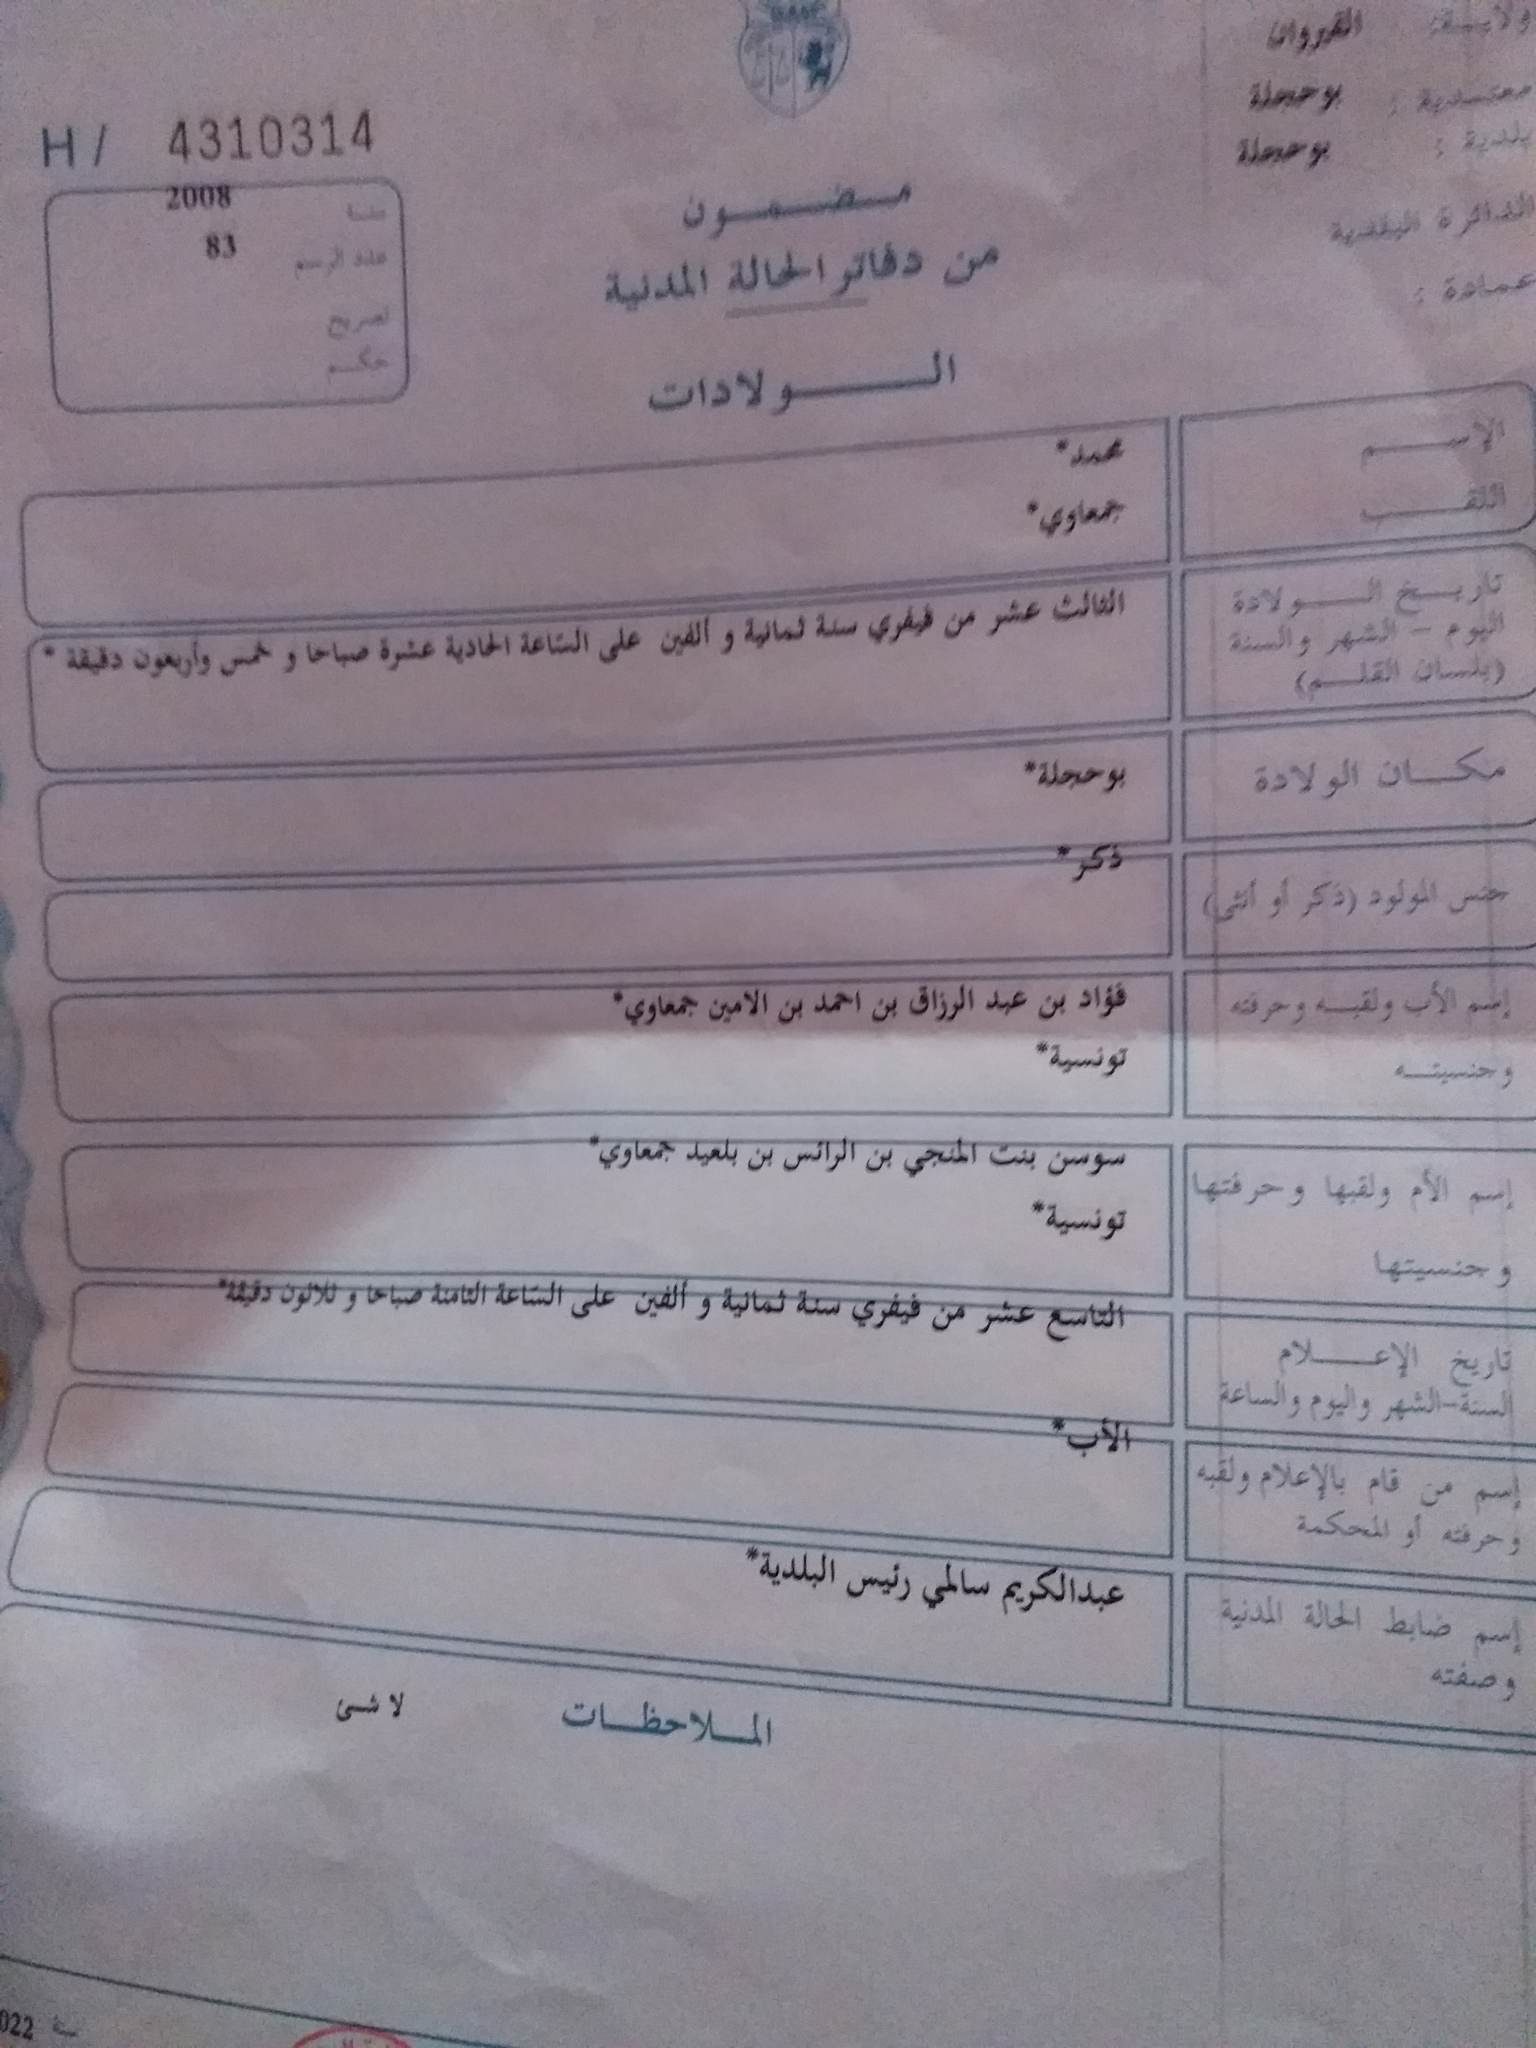 ولايـــة: القيروان
معتمدية : بوحجلة
بلدية : بوحجلة
الدائرة البلدية
عمادة :
H / 4310314
سنة 2008
عدد الرسم 83
تصريح
حكم
مـضـمـون
من دفاتر الحالة المدنية
الـولادات
الإسـم محمد*
اللقـب جمعاوي*
تاريـخ الـولادة
اليوم - الشهر والسنة
(بلسان القلـم)
الثالث عشر من فيفري سنة ثمانية و ألفين على الساعة الحادية عشرة صباحا و خمس وأربعون دقيقة *
مكـان الولادة بوحجلة*
جنس المولود (ذكر أو أنثى) ذكر*
إسم الأب ولقبـه وحرفته فؤاد بن عبد الرزاق بن احمد بن الامين جمعاوي*
وجنسيتـه تونسية*
إسم الأم ولقبها وحرفتها سوسن بنت المنجي بن الرائس بن بلعيد جمعاوي*
وجنسيتها تونسية*
تاريخ الإعـلام
السنة-الشهر واليوم والساعة
التاسع عشر من فيفري سنة ثمانية و ألفين على الساعة الثامنة صباحا و ثلاثون دقيقة*
إسم من قام بالإعلام ولقبه
وحرفته أو المحكمة
الأب*
إسم ضابط الحالة المدنية
وصفته
عبدالكريم سالمي رئيس البلدية*
المـلاحظـات لا شئ
022